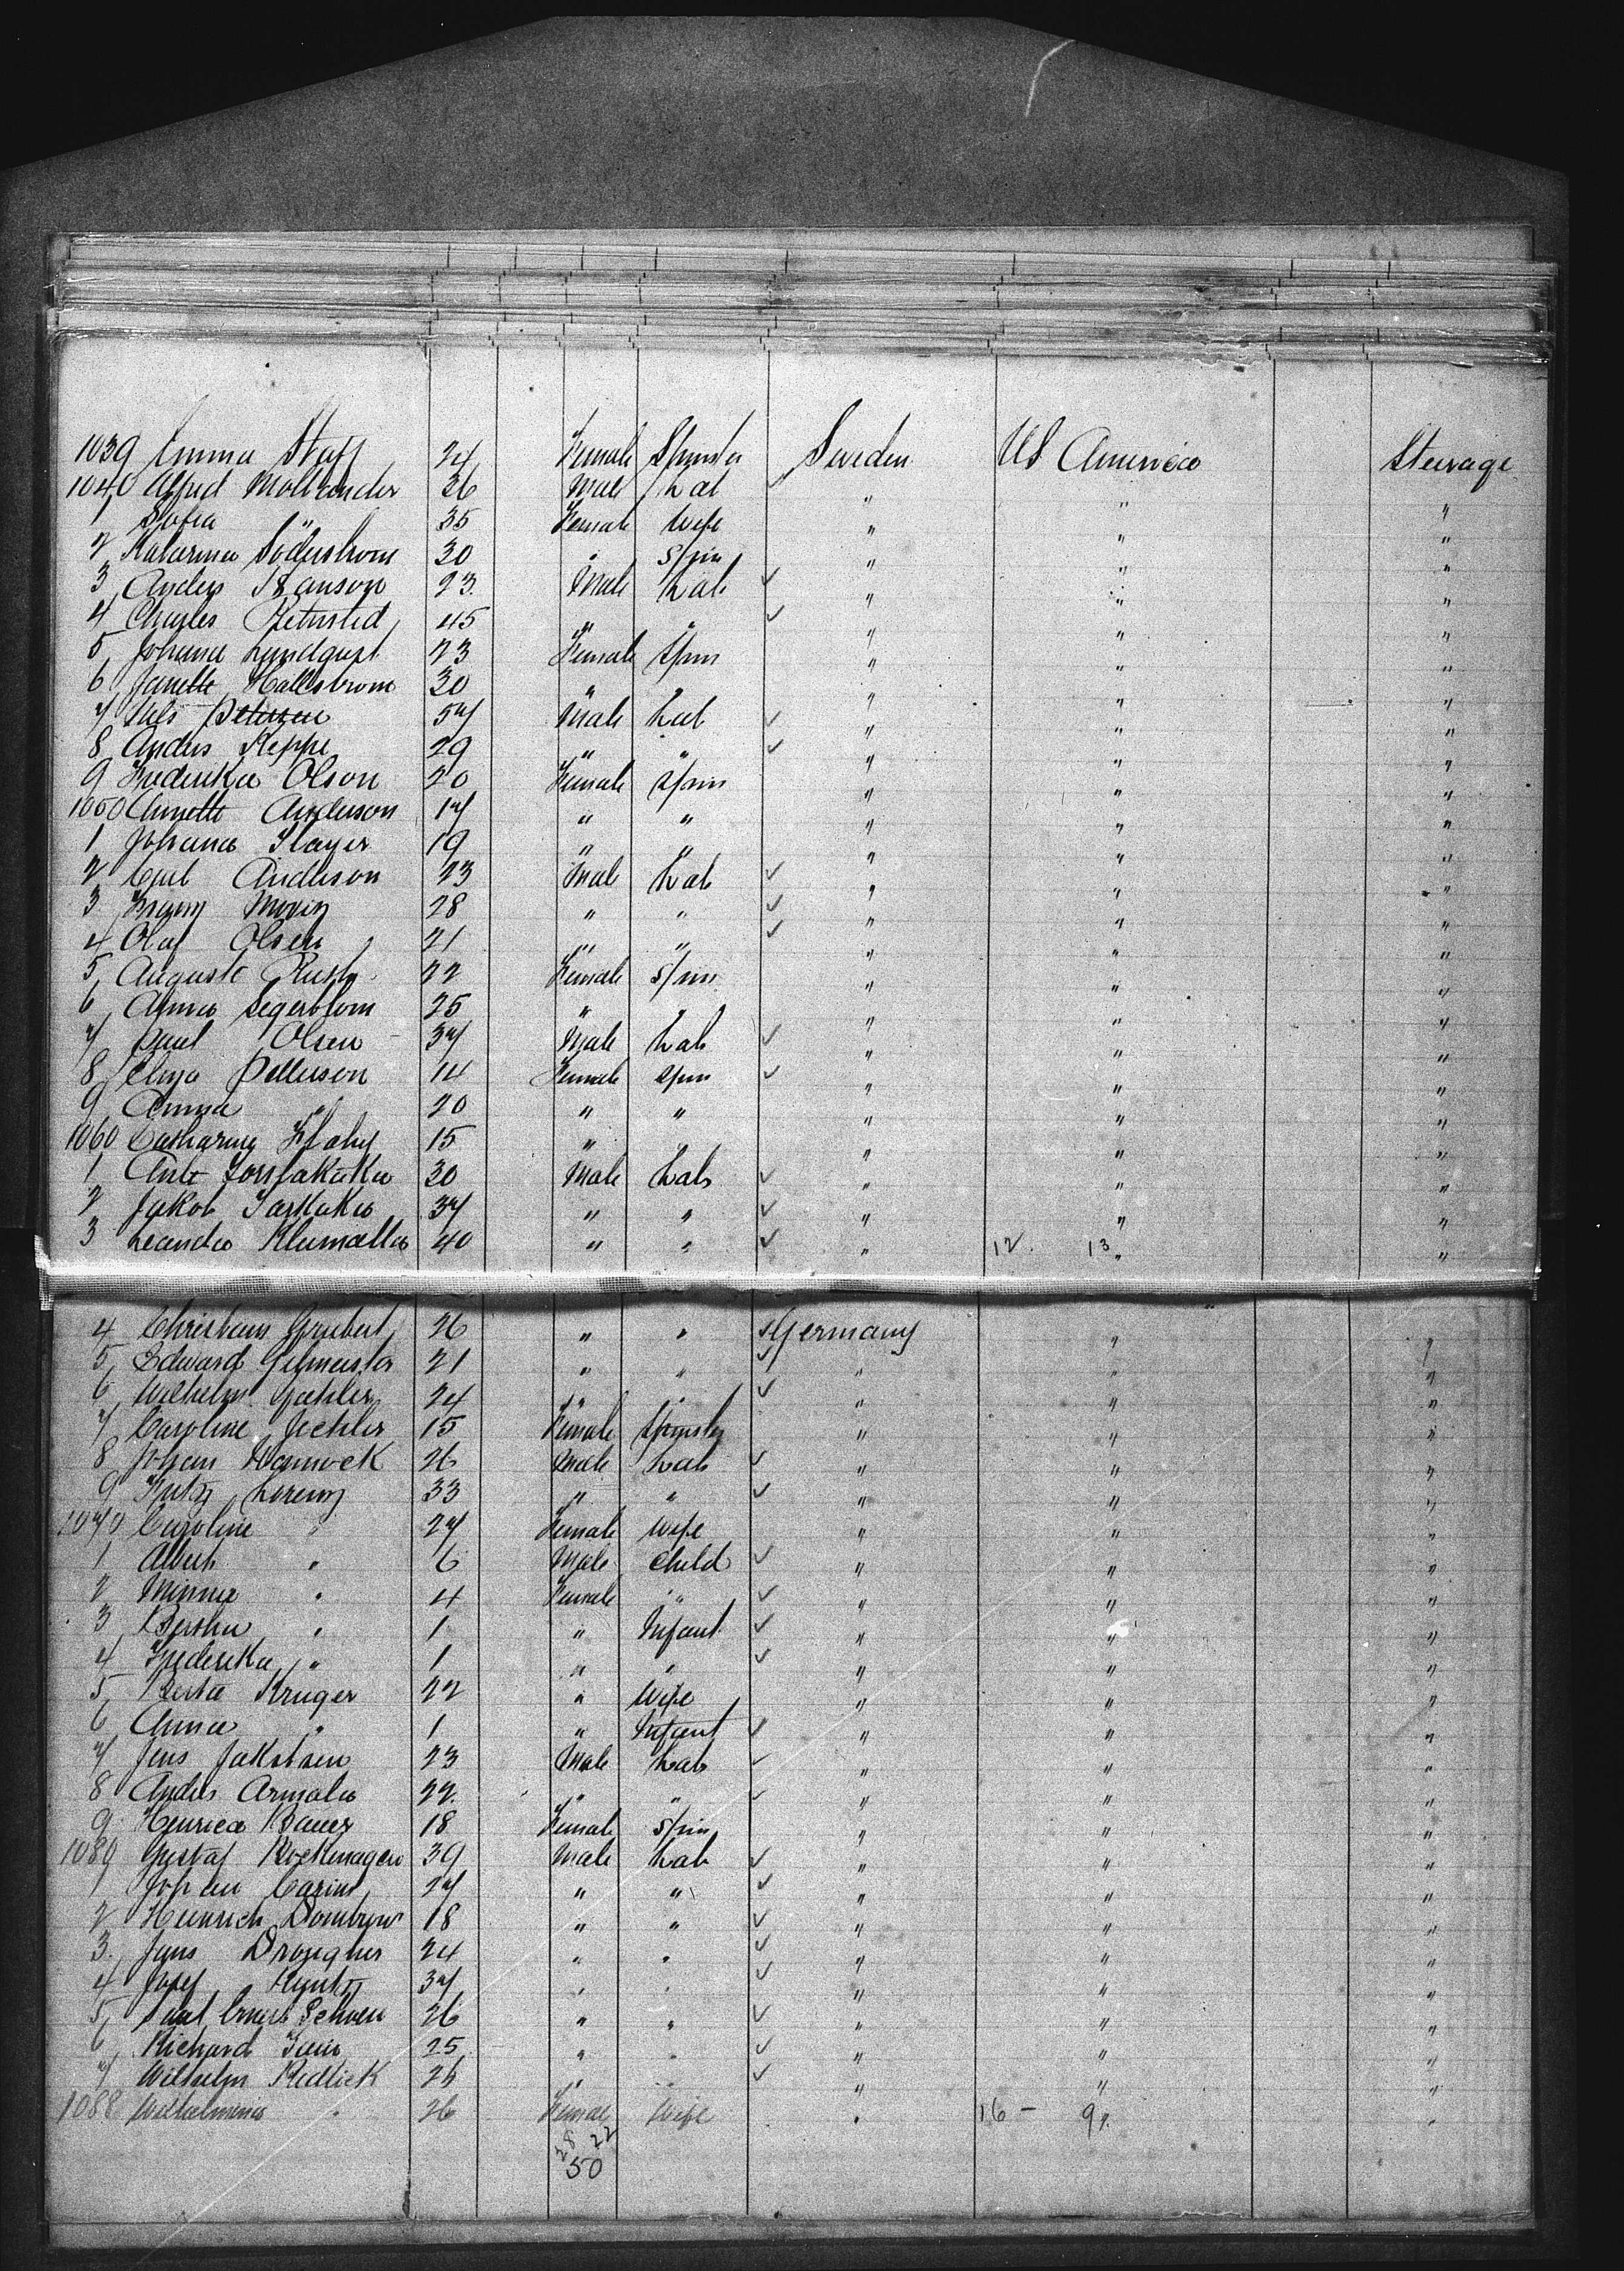 1039 Emma Staff 24 Female Spinster Sweden US America Steerage
1040 Alfred Mollrander 26 Male Lab " " "
1 Sofia " 35 Female Wife " " "
2 Katarina Soderstrom 30 " Spin " " "
3 Anders 23. Male Lab " " "
4 Charles 45 " " " " "
5 Johana Lundqust 23 Female Spin " " "
6 Janette Hallstrom 30 " " " " "
7 Nels Petersen 57 Male Lab " " "
8 Andrs Keppe 29 " " " " "
9 Frederika Olson 20 Female Spin " " "
1050 Annette Anderson 17 " " " " "
1 Johana 19 " " " " "
2 Carl Anderson 23 Male Lab " " "
3 28 " " " " "
4 Olaf Olsen 21 " " " " "
5 Auguste Rush 22 Female Spin " " "
6 Anna Segerblom 25 " " " " "
7 Paul Olsen 37 Male Lab " " "
8 Petterson 14 Female Spin " " "
9 Anna " 20 " " " " "
1060 Catharina 15 " " " "
1 30 Male Lab " " "
2 Jakob 37 " " " " "
3 Leander 40 " " " 12. 13 " "
4 Christian Grubert 26 " " Germany " "
5 Edward 21 " " " " "
6 Wilhelm Jachler 24 " " " " "
7 Caroline Jochler 15 Female Spinster " " "
8 Johan Warnock 26 Male Lab " " "
9 Fritz Lorenz 33 " " " " "
1070 Caroline " 27 Female Wife " " "
1 Albert " 6 Male Child " " "
2 Minna " 4 Female " " " "
3 Bertha " 1 " Infant " " "
4 Frederika " 1 " " " " "
5 Berta Kruger 22 " Wife " " "
6 Anna " 1 " Infant " " "
7 Jens Jakobsen 23 Male Lab " " "
8 Andrs 22. " " " " "
9 Henrica Bauer 18 Female Spin " " "
1080 Gustaf 39 Male Lab " " "
1 Johan 27 " " " " "
2 Heinrich 18 " " " " "
3. Jens 24 " " " " "
4 Josef 37 " " " " "
5 26 " " " " "
6 Richard 25 " " " " "
7 Wilhelm Redlick 26 " " " " "
1088 Wilhelmina " 26 Female Wife " 16 - 9 " "
28 22
50